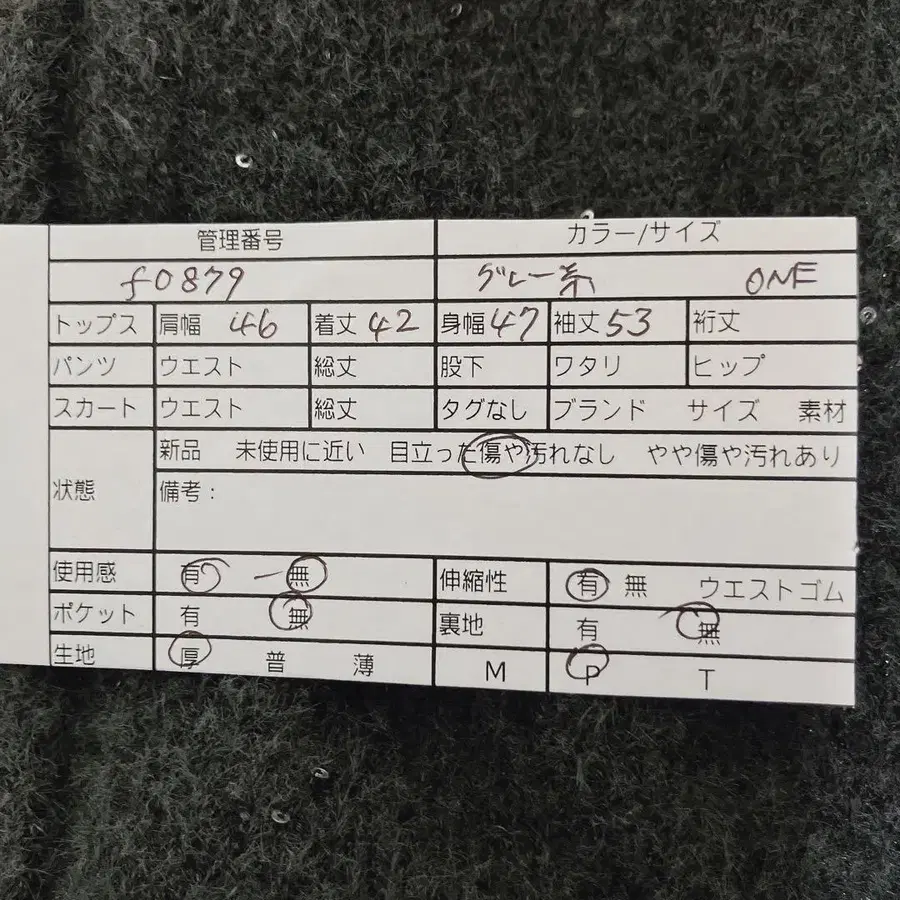 管理番号 カラー/サイズ
f0879 グレー系 ONE
トップス 肩幅 46 着丈 42 身幅 47 袖丈 53 裄丈
パンツ ウエスト 総丈 股下 ワタリ ヒップ
スカート ウエスト 総丈 タグなし ブランド サイズ 素材
新品 未使用に近い 目立った傷や汚れなし やや傷や汚れあり
状態 備考:
使用感 有 無 伸縮性 有 無 ウエストゴム
ポケット 有 無 裏地 有 無
生地 厚 普 薄 M P T